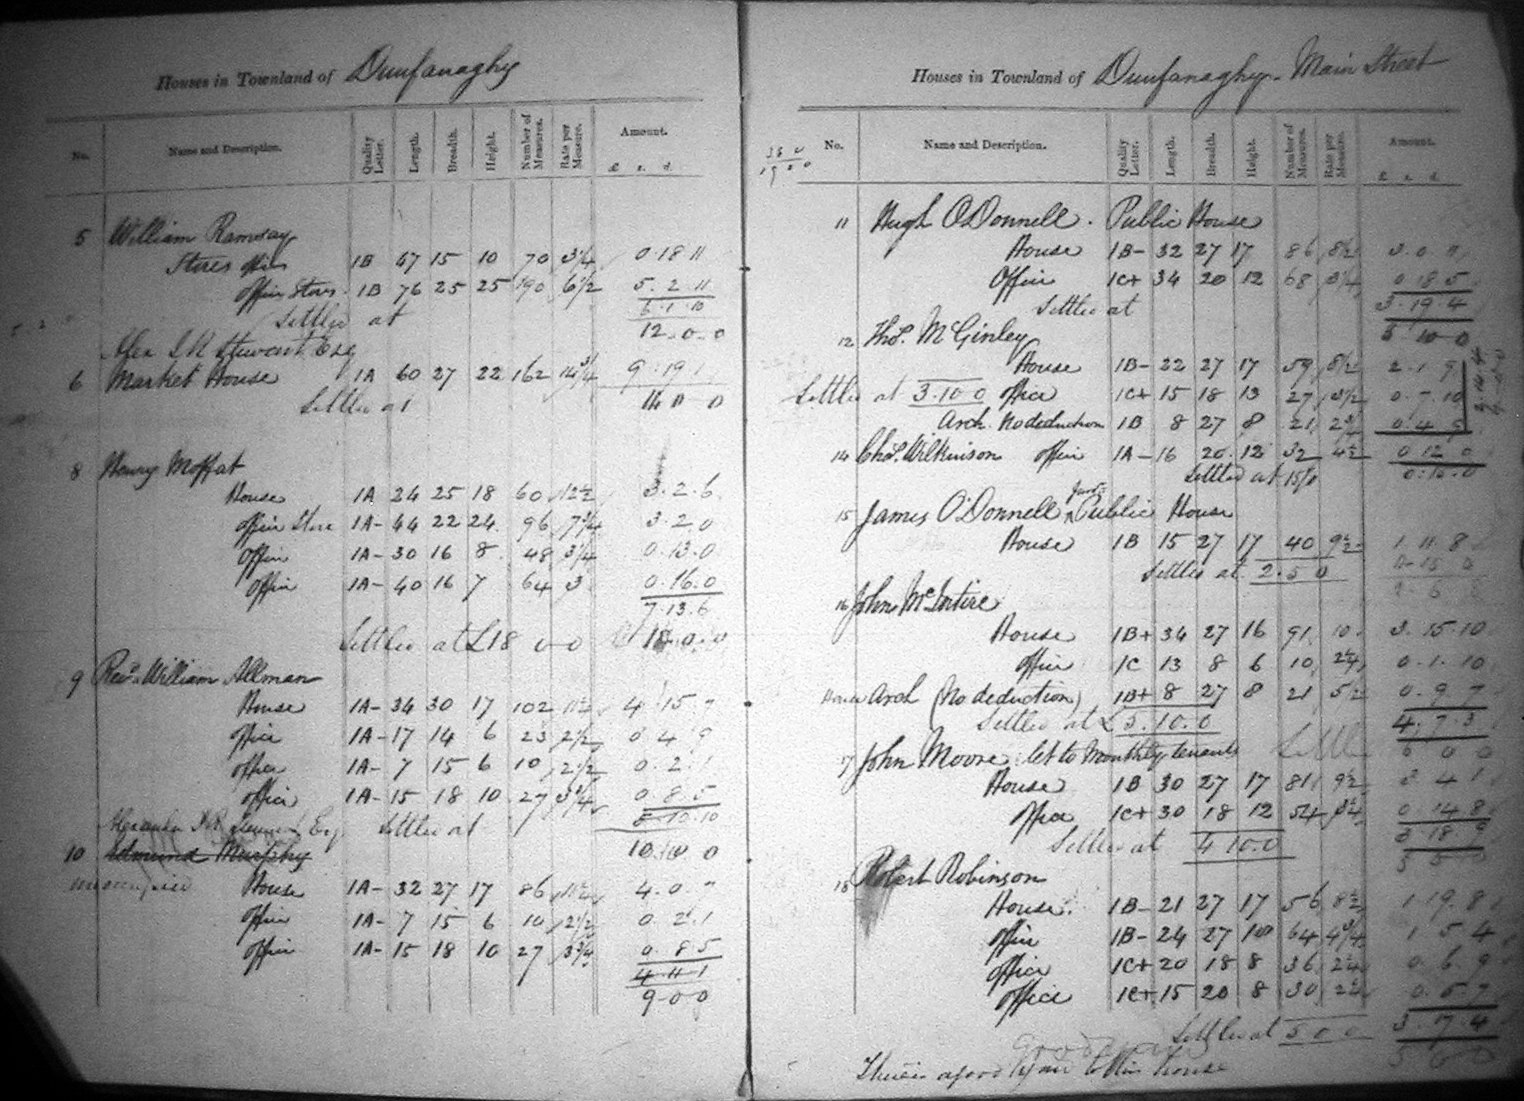 Houses in Townland of Dunfanaghy
No. Name and Description. Quality Letter. Length. Breadth. Height. Number of Measures. Rate per Measure. Amount.
£ s. d.
5 William Ramsay
Stores office 1B 15 10 70 3¼ 0.18.11
Office Stores 1B 76 25 25 190 6½ 5.2.11
6.1.10
Settled at 12.0.0
Alex J R Stewart Esq
6 Market House 1A 60 27 22 162 14¾ 9.19.1
Settled at
8 Henry Moffat
House 1A 24 25 18 60 12½ 3.2.6
office Store 1A- 44 22 24 96 7¾ 3.2.0
Office 1A- 30 16 8 48 3¼ 0.13.0
Office 1A- 40 16 7 64 3 0.16.0
7.13.6
Settled at £18 0-0 18.0.0
9 Revd. William Allman
House 1A- 34 30 17 102 11½ 4.15.7
office 1A- 17 14 6 23 2½ 0.4.9
office 1A- 7 15 6 10 2½ 0.2.1
office 1A- 15 18 10 27 3¾ 0.8.5
5.10.10
Alexander J R Stewart Esq Settled at
10 Edmund Murphy
unoccupied House 1A- 32 27 17 86 11½ 4.0.7
Office 1A- 7 15 6 10 2½ 0.2.1
Office 1A- 15 18 10 27 3¾ 0.8.5
4.11.1
9-0-0
Houses in Townland of Dunfanaghy - Main Street
No. Name and Description. Quality Letter. Length. Breadth. Height. Number of Measures. Rate per Measure. Amount.
£ s. d.
11 Hugh O'Donnell. Public House
House 1B- 32 27 17 86 8½
Office 1C+ 34 20 12 68 3¼ 0.18.5
Settled at 3.19.4
12 Thos. McGinley
House 1B- 22 27 17 59 8½ 2.1.9
Settled at 3.10.0 office 1C+ 15 18 13 27 3½ 0.7.10
Arch. No deduction 1B 8 27 8 21 2¾
14 Chas. Wilkinson office 1A- 16 20 12 32 4½ 0.12.0
Settled at 15/0 0.15.0
15 James O'Donnell Part Public House
House 1B 15 27 17 40 9½ 1.11.8
Settled at 2.5.0
16 John McIntire
House 1B+ 34 27 16 91 10 3.15.10
office 1C 13 8 6 10 2¼ 0.1.10
House Arch (No deduction) 1B+ 8 27 8 21 5½ 0.9.7
Settled at £5.10.0 4.7.3
17 John Moore let to Monthly tenants
House 1B 30 27 17 81 9½ 3.4.1
Office 1C+ 30 18 12 54 3¼ 0.14.8
Settled at 4.10.0 3.18.9
18 Robert Robinson
House. 1B- 21 27 17 56 8½ 1.19.8
office 1B- 24 27 10 64 4¾ 1.5.4
office 1C+ 20 18 8 36 2¼ 0.6.9
office 1C+ 15 20 8 30 2¼ 0.5.7
Settled at 5 0 0 3.7.4
There is a good Yard to this house